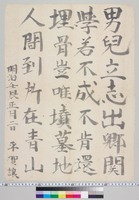 男兒立志出鄉關
學若不成不肯還
埋骨豈唯墳墓地
人間到所在青山
明治 正月二日 平賀讓